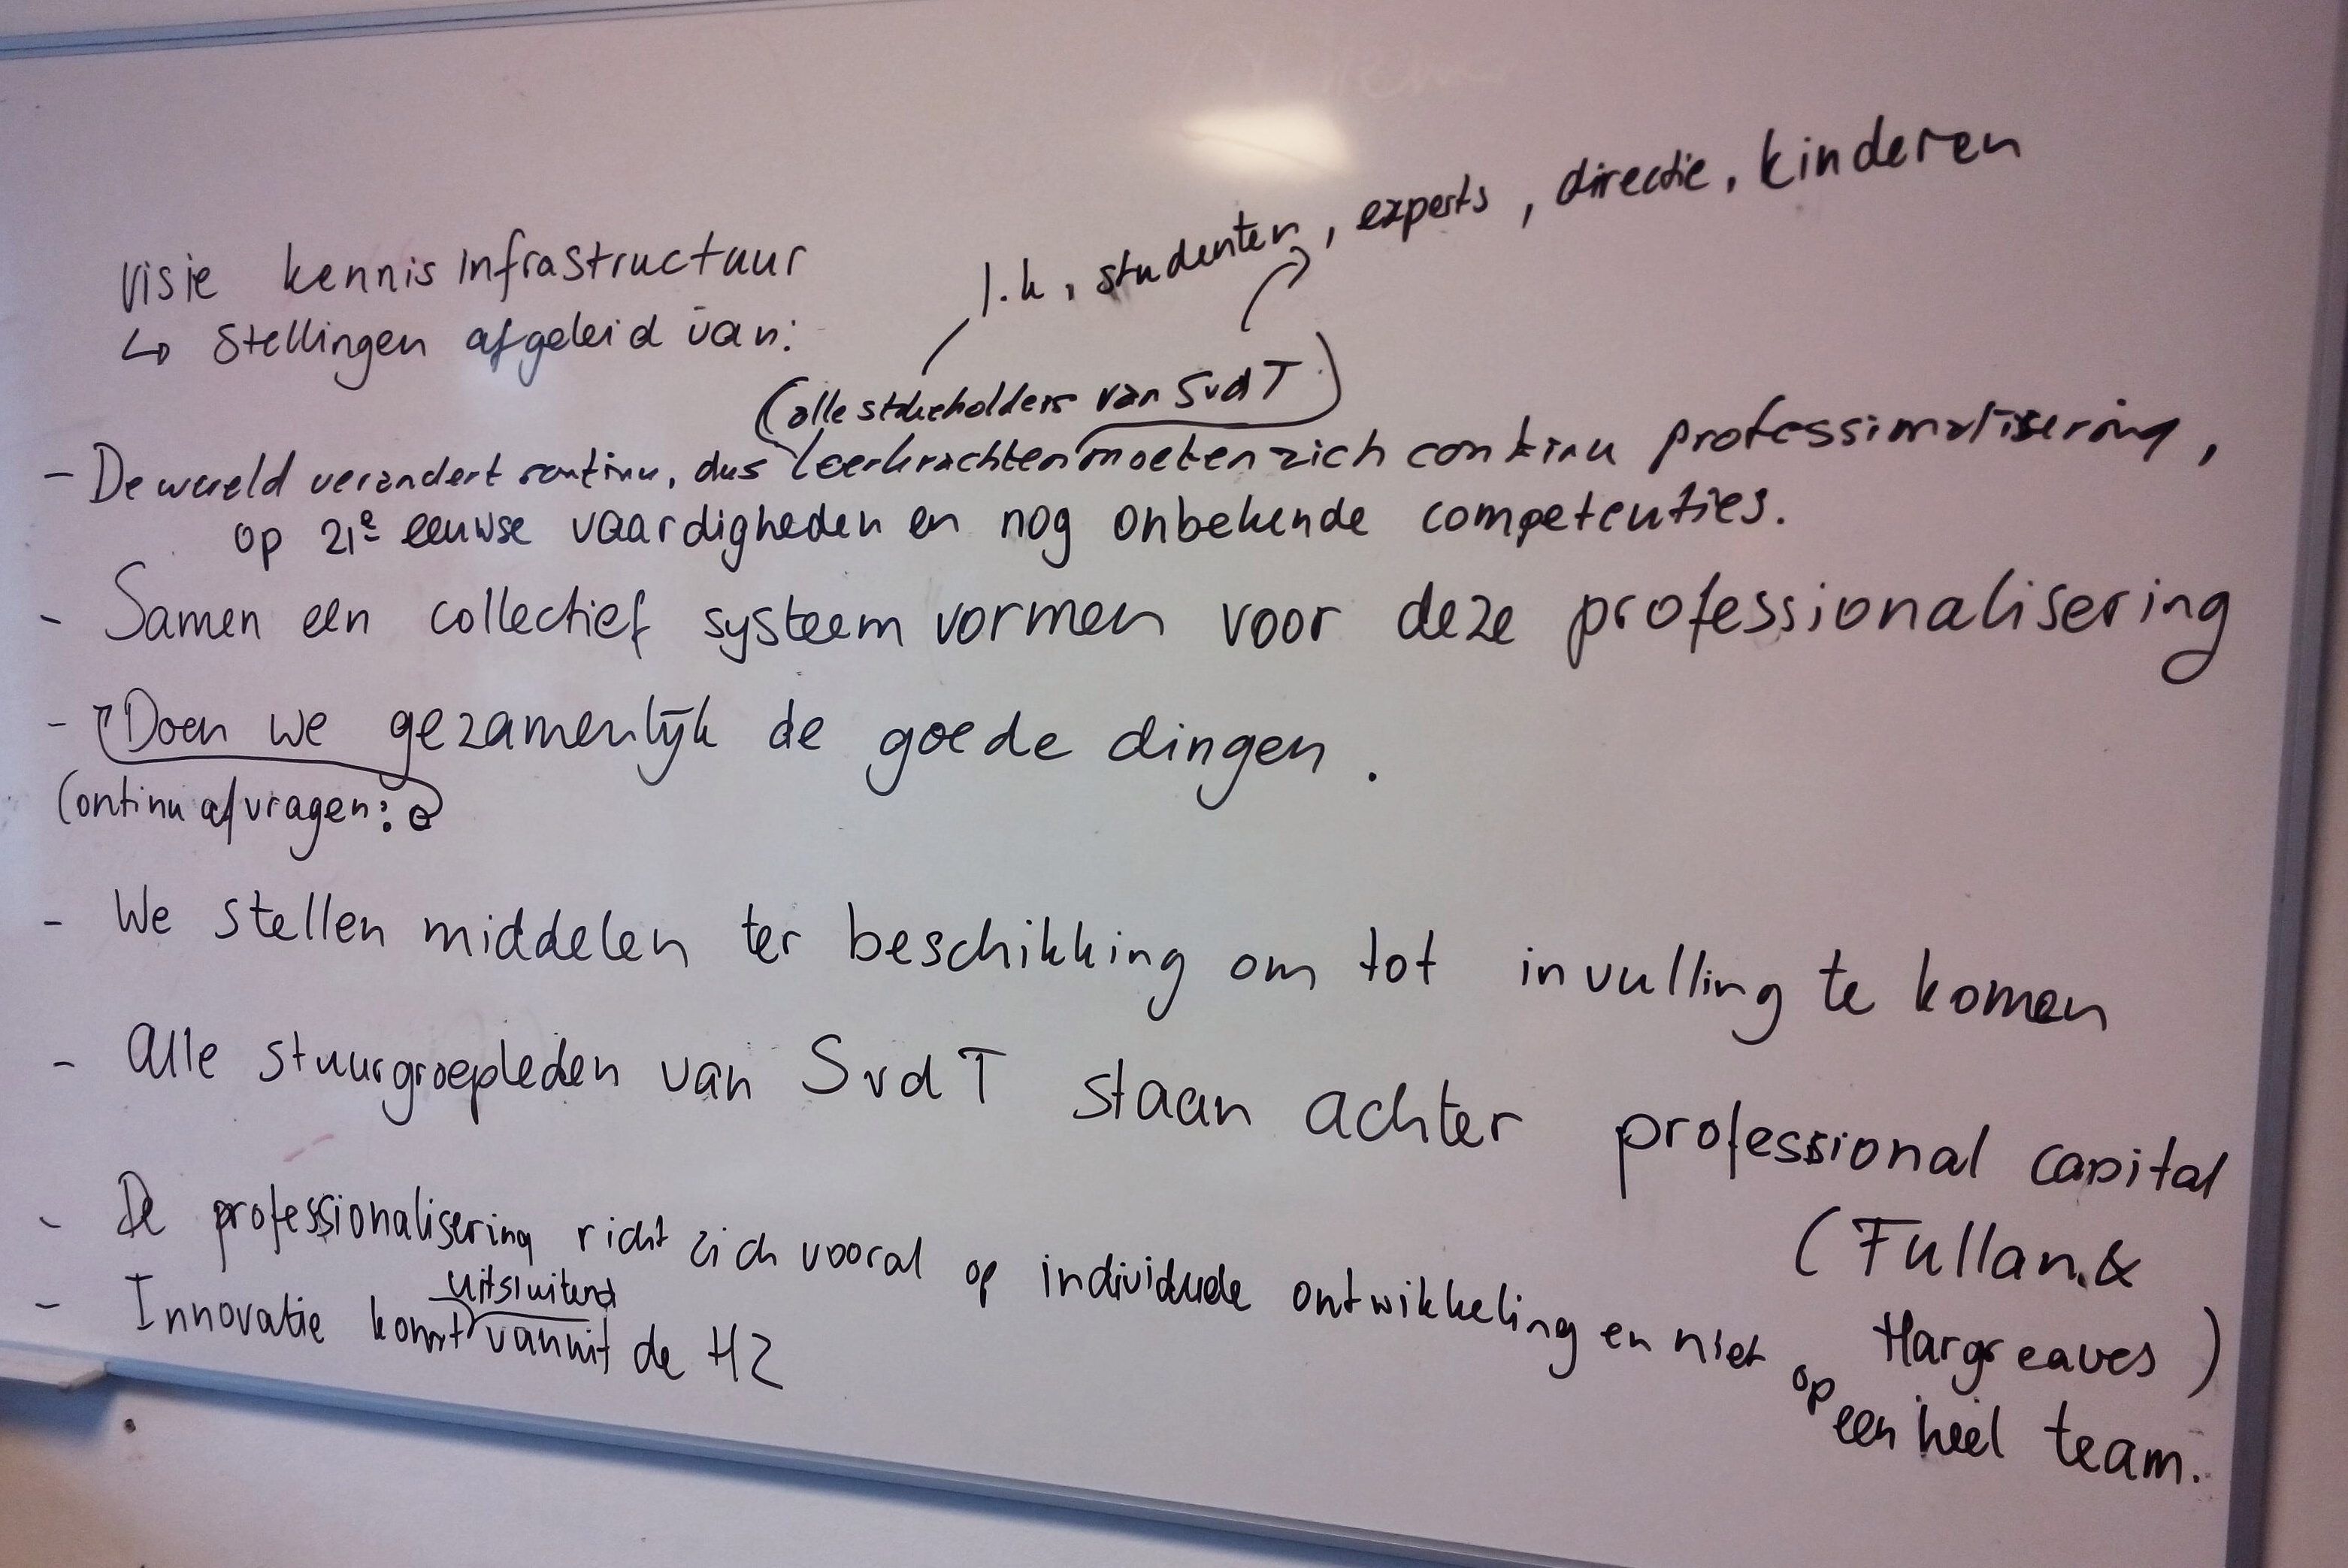 l.k, studenten, experts, directie, kinderen
Visie kennisinfrastructuur
↳ Stellingen afgeleid van:
(alle stakeholders van SvdT)
- De wereld verandert continu, dus leerkrachten moeten zich continu professionalisering,
op 21e eeuwse vaardigheden en nog onbekende competenties.
- Samen een collectief systeem vormen voor deze professionalisering
- Doen we gezamenlijk de goede dingen.
Continu afvragen:
- We stellen middelen ter beschikking om tot invulling te komen
- Alle stuurgroepleden van SvdT staan achter professional capital
(Fullan &
Hargreaves)
- De professionalisering richt zich vooral op individuele ontwikkeling en niet op
een heel team.
uitsluitend
- Innovatie komt vanuit de HZ